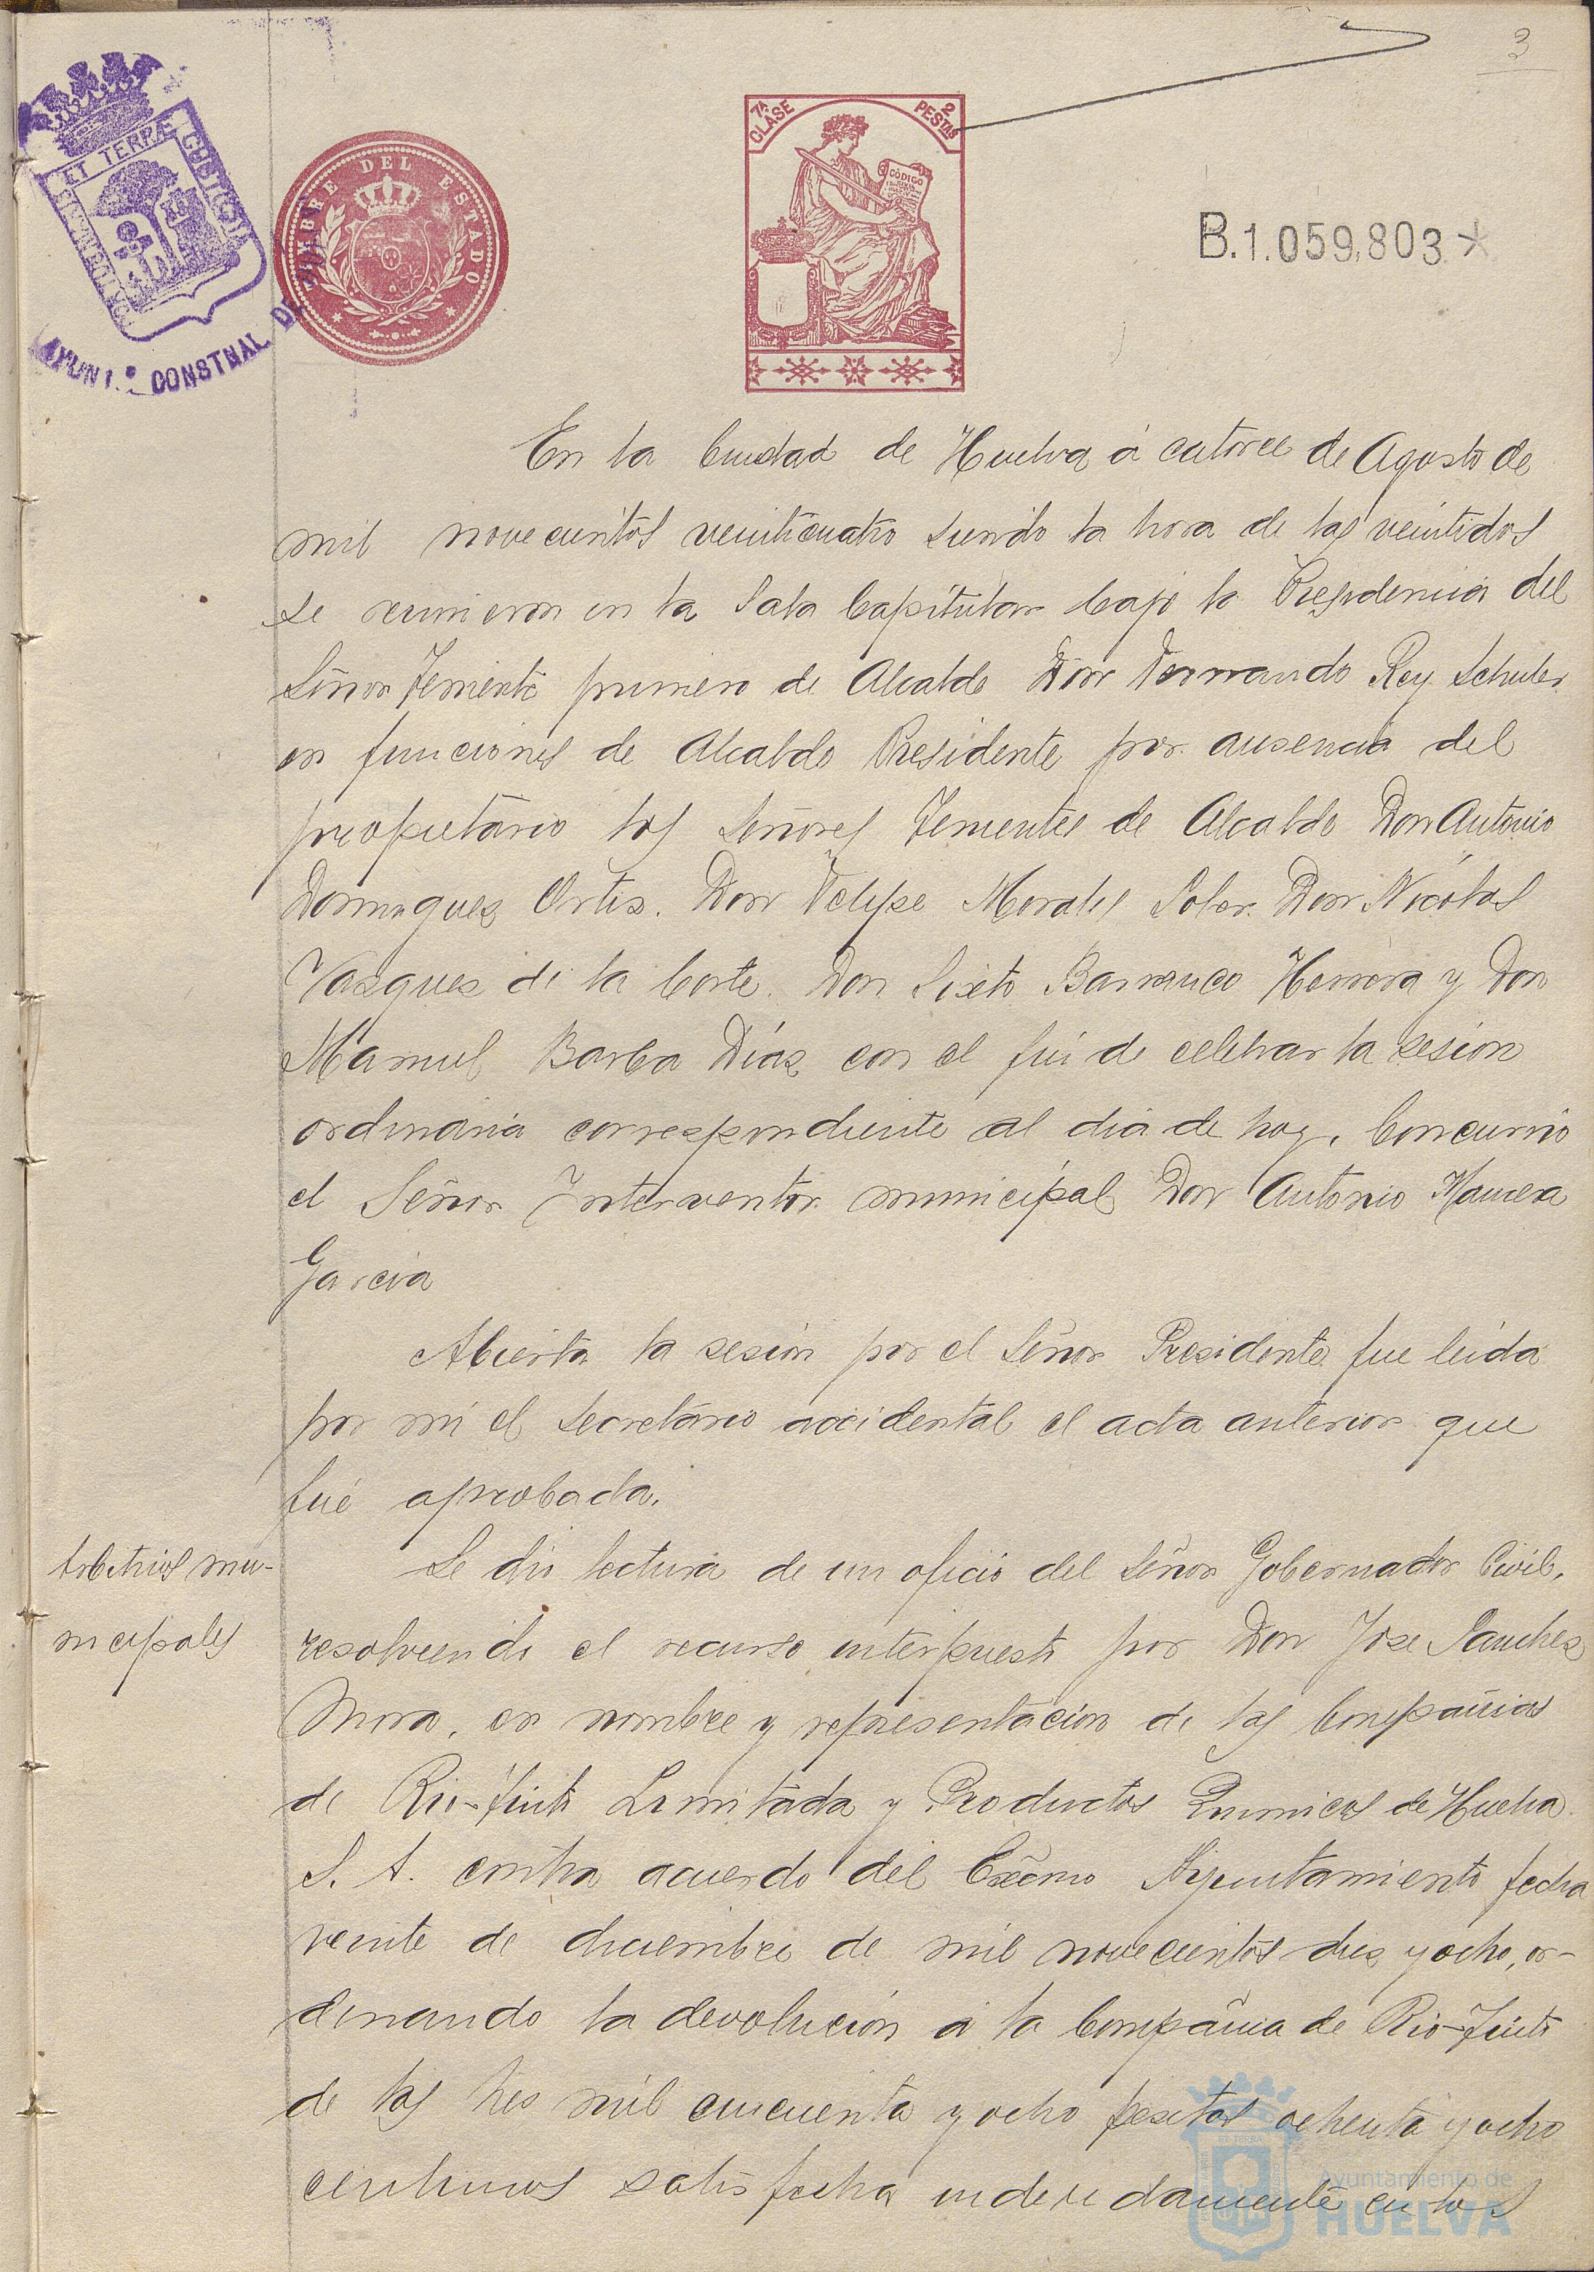 3
ET TERRÆ CUSTODIA
PORTUS MARIS
AYUNT.º CONSTNAL DE
TIMBRE DEL ESTADO
7ª CLASE
2 PESTAS
CÓDIGO
B.1.059,803*
En la Ciudad de Huelva á catorce de Agosto de
mil novecientos veinticuatro siendo la hora de las veintidos
se reunieron en la Sala Capitular bajo la Presidencia del
Señor Teniente primero de Alcalde Don Fernando Rey Schuler
en funciones de Alcalde Presidente por ausencia del
propietario los Señores Tenientes de Alcalde Don Antonio
Dominguez Ortiz. Don Felipe Morales Soler. Don Nicolas
Vazquez de la Corte. Don Sixto Barranco Herrera y Don
Manuel Barba Díaz con el fin de celebrar la sesion
ordinaria correspondiente al dia de hoy. Concurrió
el Señor Interventor municipal Don Antonio
Garcia
Abierta la sesión por el Señor Presidente fue leida
por mi el Secretario accidental el acta anterior que
fué aprobada.
Arbitrios mu-
nicipales
Se dio lectura de un oficio del Señor Gobernador Civil,
resolviendo el recurso interpuesto por Don Jose Sanchez
Mora, en nombre y representacion de las Compañias
de Rio-Tinto Limitada y Productos Quimicos de Huelva
S. A. contra acuerdo del Excmo Ayuntamiento fecha
veinte de diciembre de mil novecientos diez y ocho, or-
denando la devolución á la Compañia de Rio-Tinto
de las tres mil cincuenta y ocho pesetas ochenta y ocho
centimos satisfecha indevidamente en los
Ayuntamiento de
HUELVA